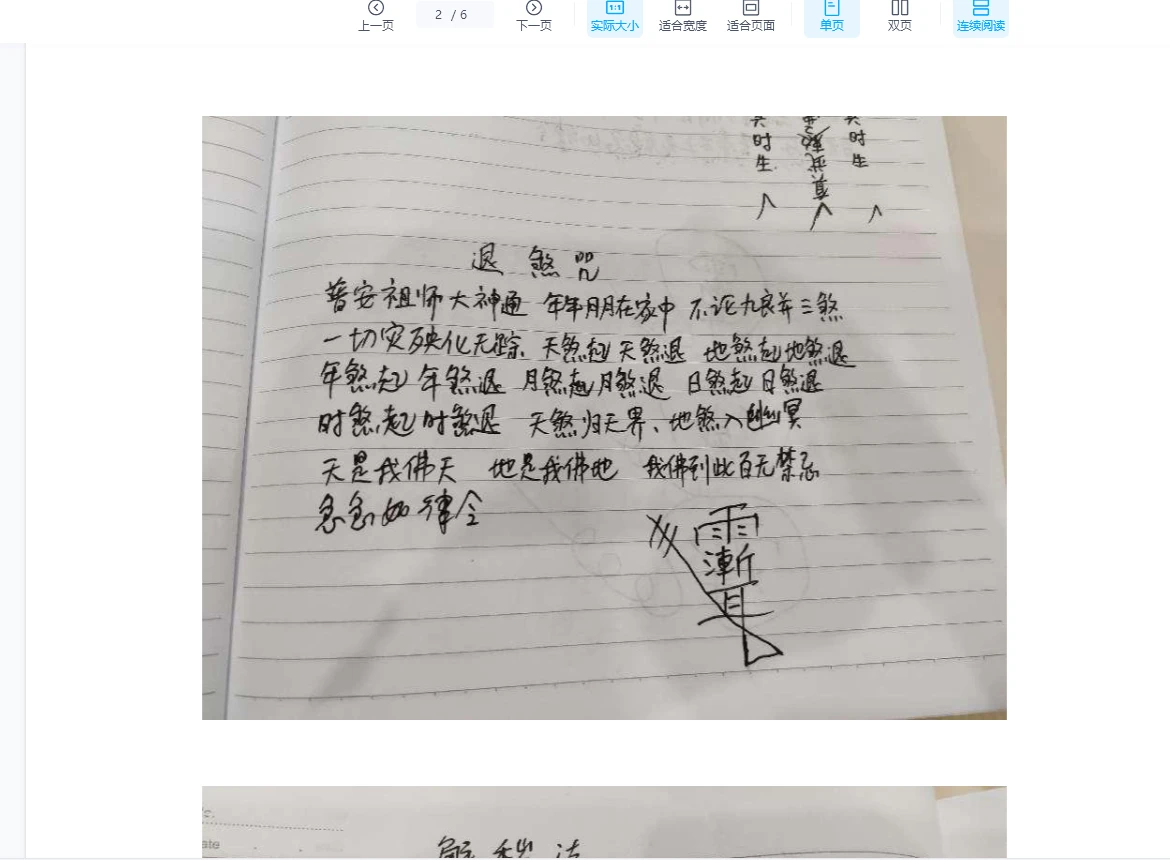 上一页
2 / 6
下一页
1:1
实际大小
适合宽度
适合页面
单页
双页
连续阅读
时生
真武
时生
退煞咒
普安祖师大神通 年年月月在家中 不论九良并三煞
一切灾殃化无踪、天煞起天煞退 地煞起地煞退
年煞起年煞退 月煞起月煞退 日煞起日煞退
时煞起时煞退 天煞归天界、地煞入幽冥
天是我佛天 地是我佛地 我佛到此百无禁忌
急急如律令
ate